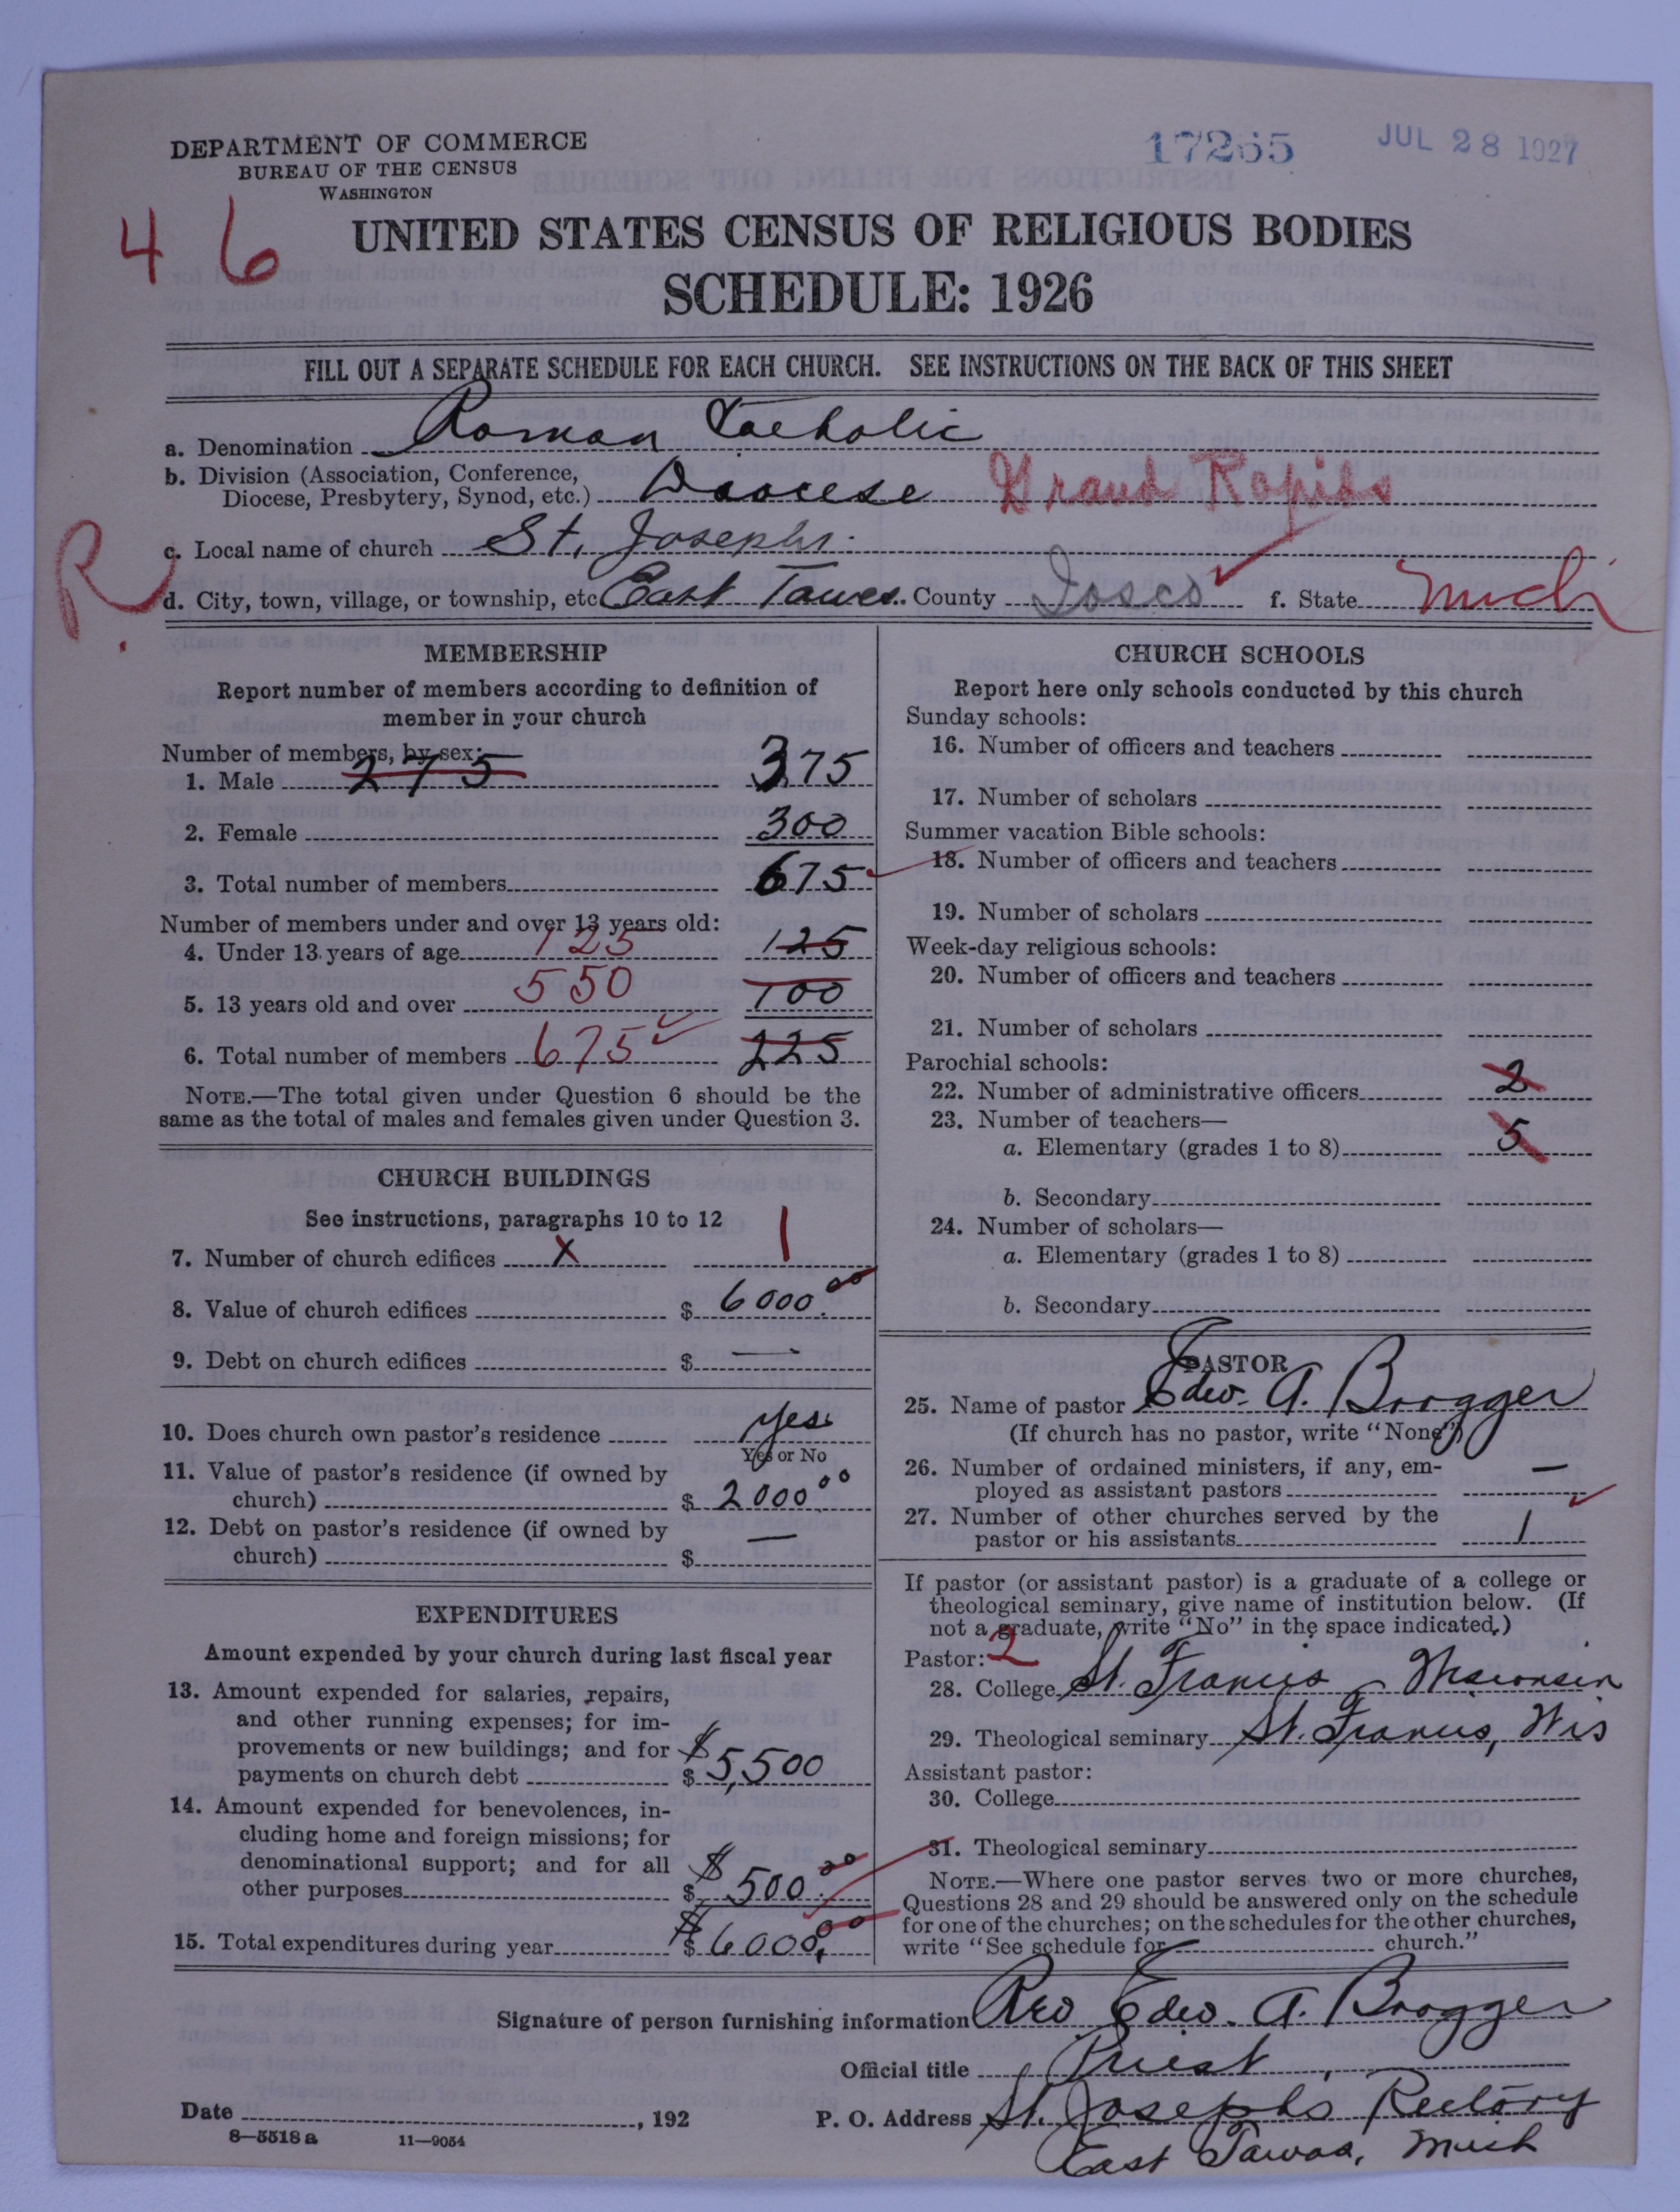 17265 JUL 28 1927
DEPARTMENT OF COMMERCE
BUREAU OF THE CENSUS
WASHINGTON
4 6
UNITED STATES CENSUS OF RELIGIOUS BODIES
SCHEDULE: 1926
FILL OUT A SEPARATE SCHEDULE FOR EACH CHURCH. SEE INSTRUCTIONS ON THE BACK OF THIS SHEET
a. Denomination Roman Catholic
b. Division (Association, Conference,
Diocese, Presbytery, Synod, etc.) Diocese Grand Rapids
R.
c. Local name of church St. Josephs.
d. City, town, village, or township, etc East Tawas County Iosco f. State Mich
MEMBERSHIP
Report number of members according to definition of
member in your church
Number of members, by sex:
1. Male 275 375
2. Female 300
3. Total number of members 675
Number of members under and over 13 years old:
4. Under 13 years of age 125 125
5. 13 years old and over 550 100
6. Total number of members 675 225
NOTE.—The total given under Question 6 should be the
same as the total of males and females given under Question 3.
CHURCH BUILDINGS
See instructions, paragraphs 10 to 12
7. Number of church edifices x 1
8. Value of church edifices $ 6000.00
9. Debt on church edifices $ —
10. Does church own pastor's residence Yes
Yes or No
11. Value of pastor's residence (if owned by
church) $ 2000 00
12. Debt on pastor's residence (if owned by
church) $ —
EXPENDITURES
Amount expended by your church during last fiscal year
13. Amount expended for salaries, repairs,
and other running expenses; for im-
provements or new buildings; and for
payments on church debt $ $5,500
14. Amount expended for benevolences, in-
cluding home and foreign missions; for
denominational support; and for all
other purposes $ $500.00
15. Total expenditures during year $ $6000.00
CHURCH SCHOOLS
Report here only schools conducted by this church
Sunday schools:
16. Number of officers and teachers
17. Number of scholars
Summer vacation Bible schools:
18. Number of officers and teachers
19. Number of scholars
Week-day religious schools:
20. Number of officers and teachers
21. Number of scholars
Parochial schools:
22. Number of administrative officers 2
23. Number of teachers—
a. Elementary (grades 1 to 8) 5
b. Secondary
24. Number of scholars—
a. Elementary (grades 1 to 8)
b. Secondary
PASTOR
25. Name of pastor Edw. A. Brogger
(If church has no pastor, write "None")
26. Number of ordained ministers, if any, em-
ployed as assistant pastors —
27. Number of other churches served by the
pastor or his assistants 1
If pastor (or assistant pastor) is a graduate of a college or
theological seminary, give name of institution below. (If
not a graduate, write "No" in the space indicated.)
Pastor: 2
28. College St. Francis Wisconsin
29. Theological seminary St. Francis, Wis
Assistant pastor:
30. College
31. Theological seminary
NOTE.—Where one pastor serves two or more churches,
Questions 28 and 29 should be answered only on the schedule
for one of the churches; on the schedules for the other churches,
write "See schedule for church."
Signature of person furnishing information Rev. Edw. A. Brogger
Official title Priest
Date , 192 P. O. Address St. Josephs Rectory
East Tawas, Mich
8—5518 a 11—9054